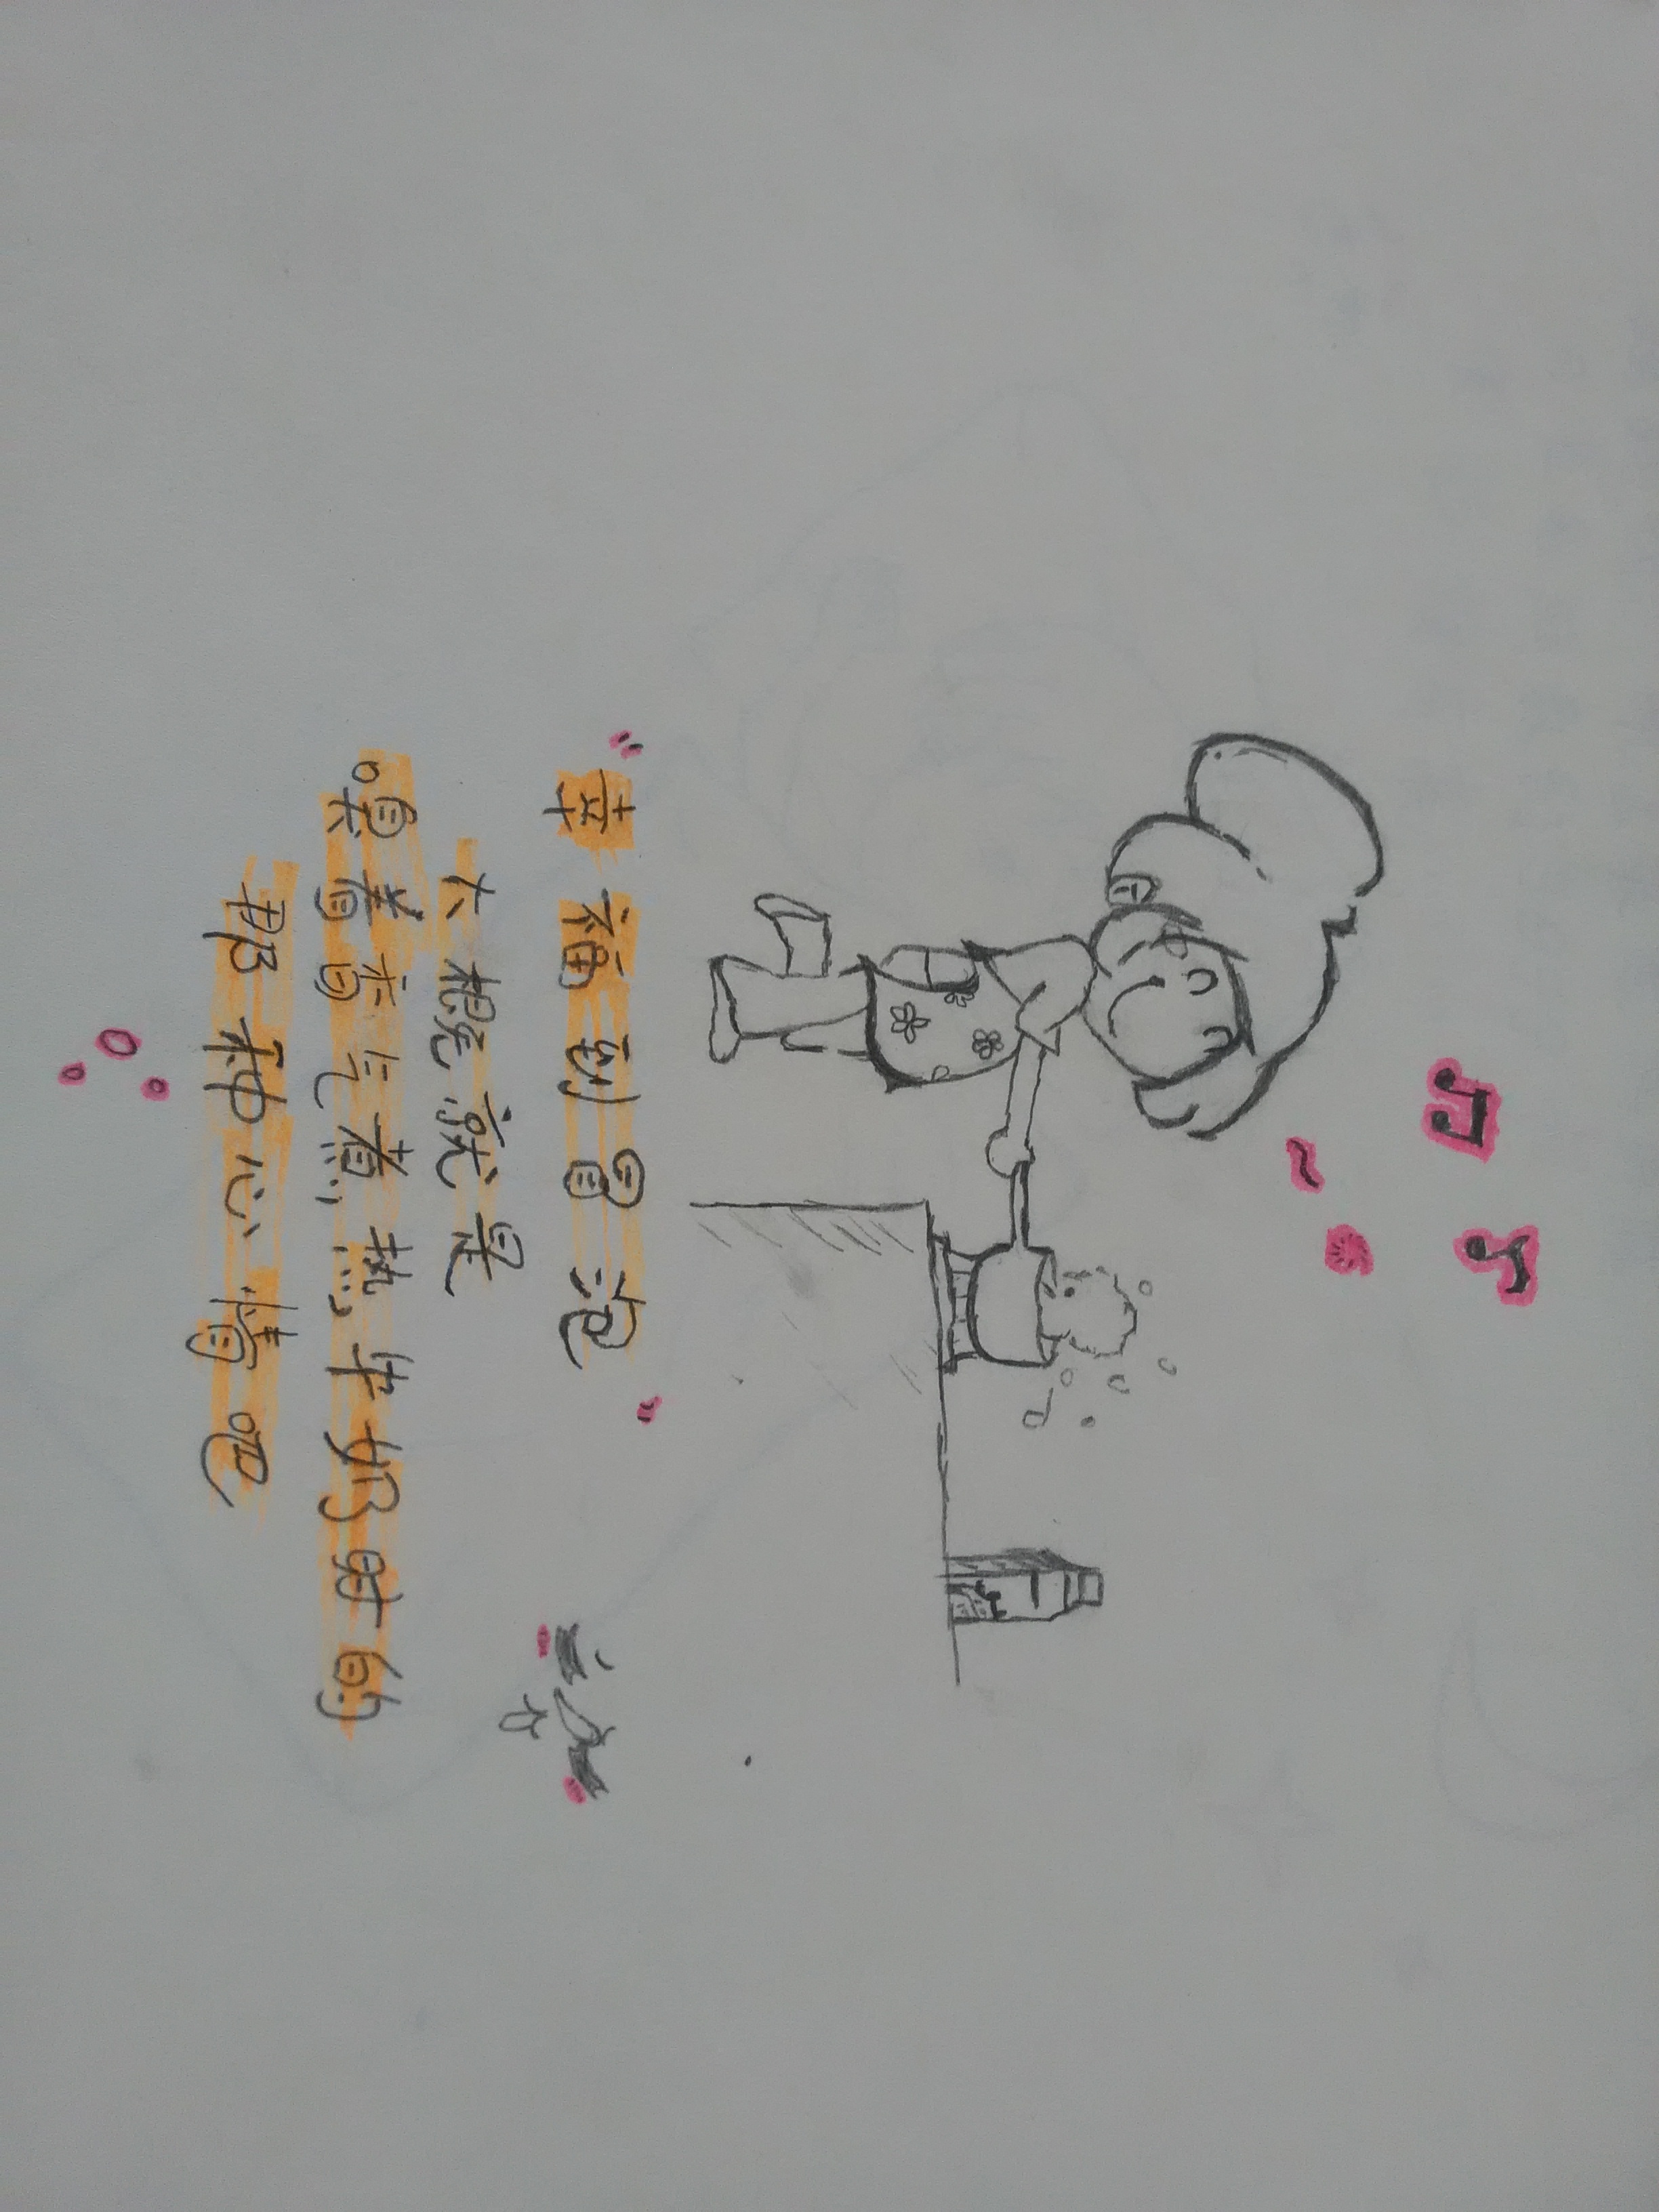 幸福到冒泡
大概就是
嗅着香气煮热牛奶时的
那种心情吧